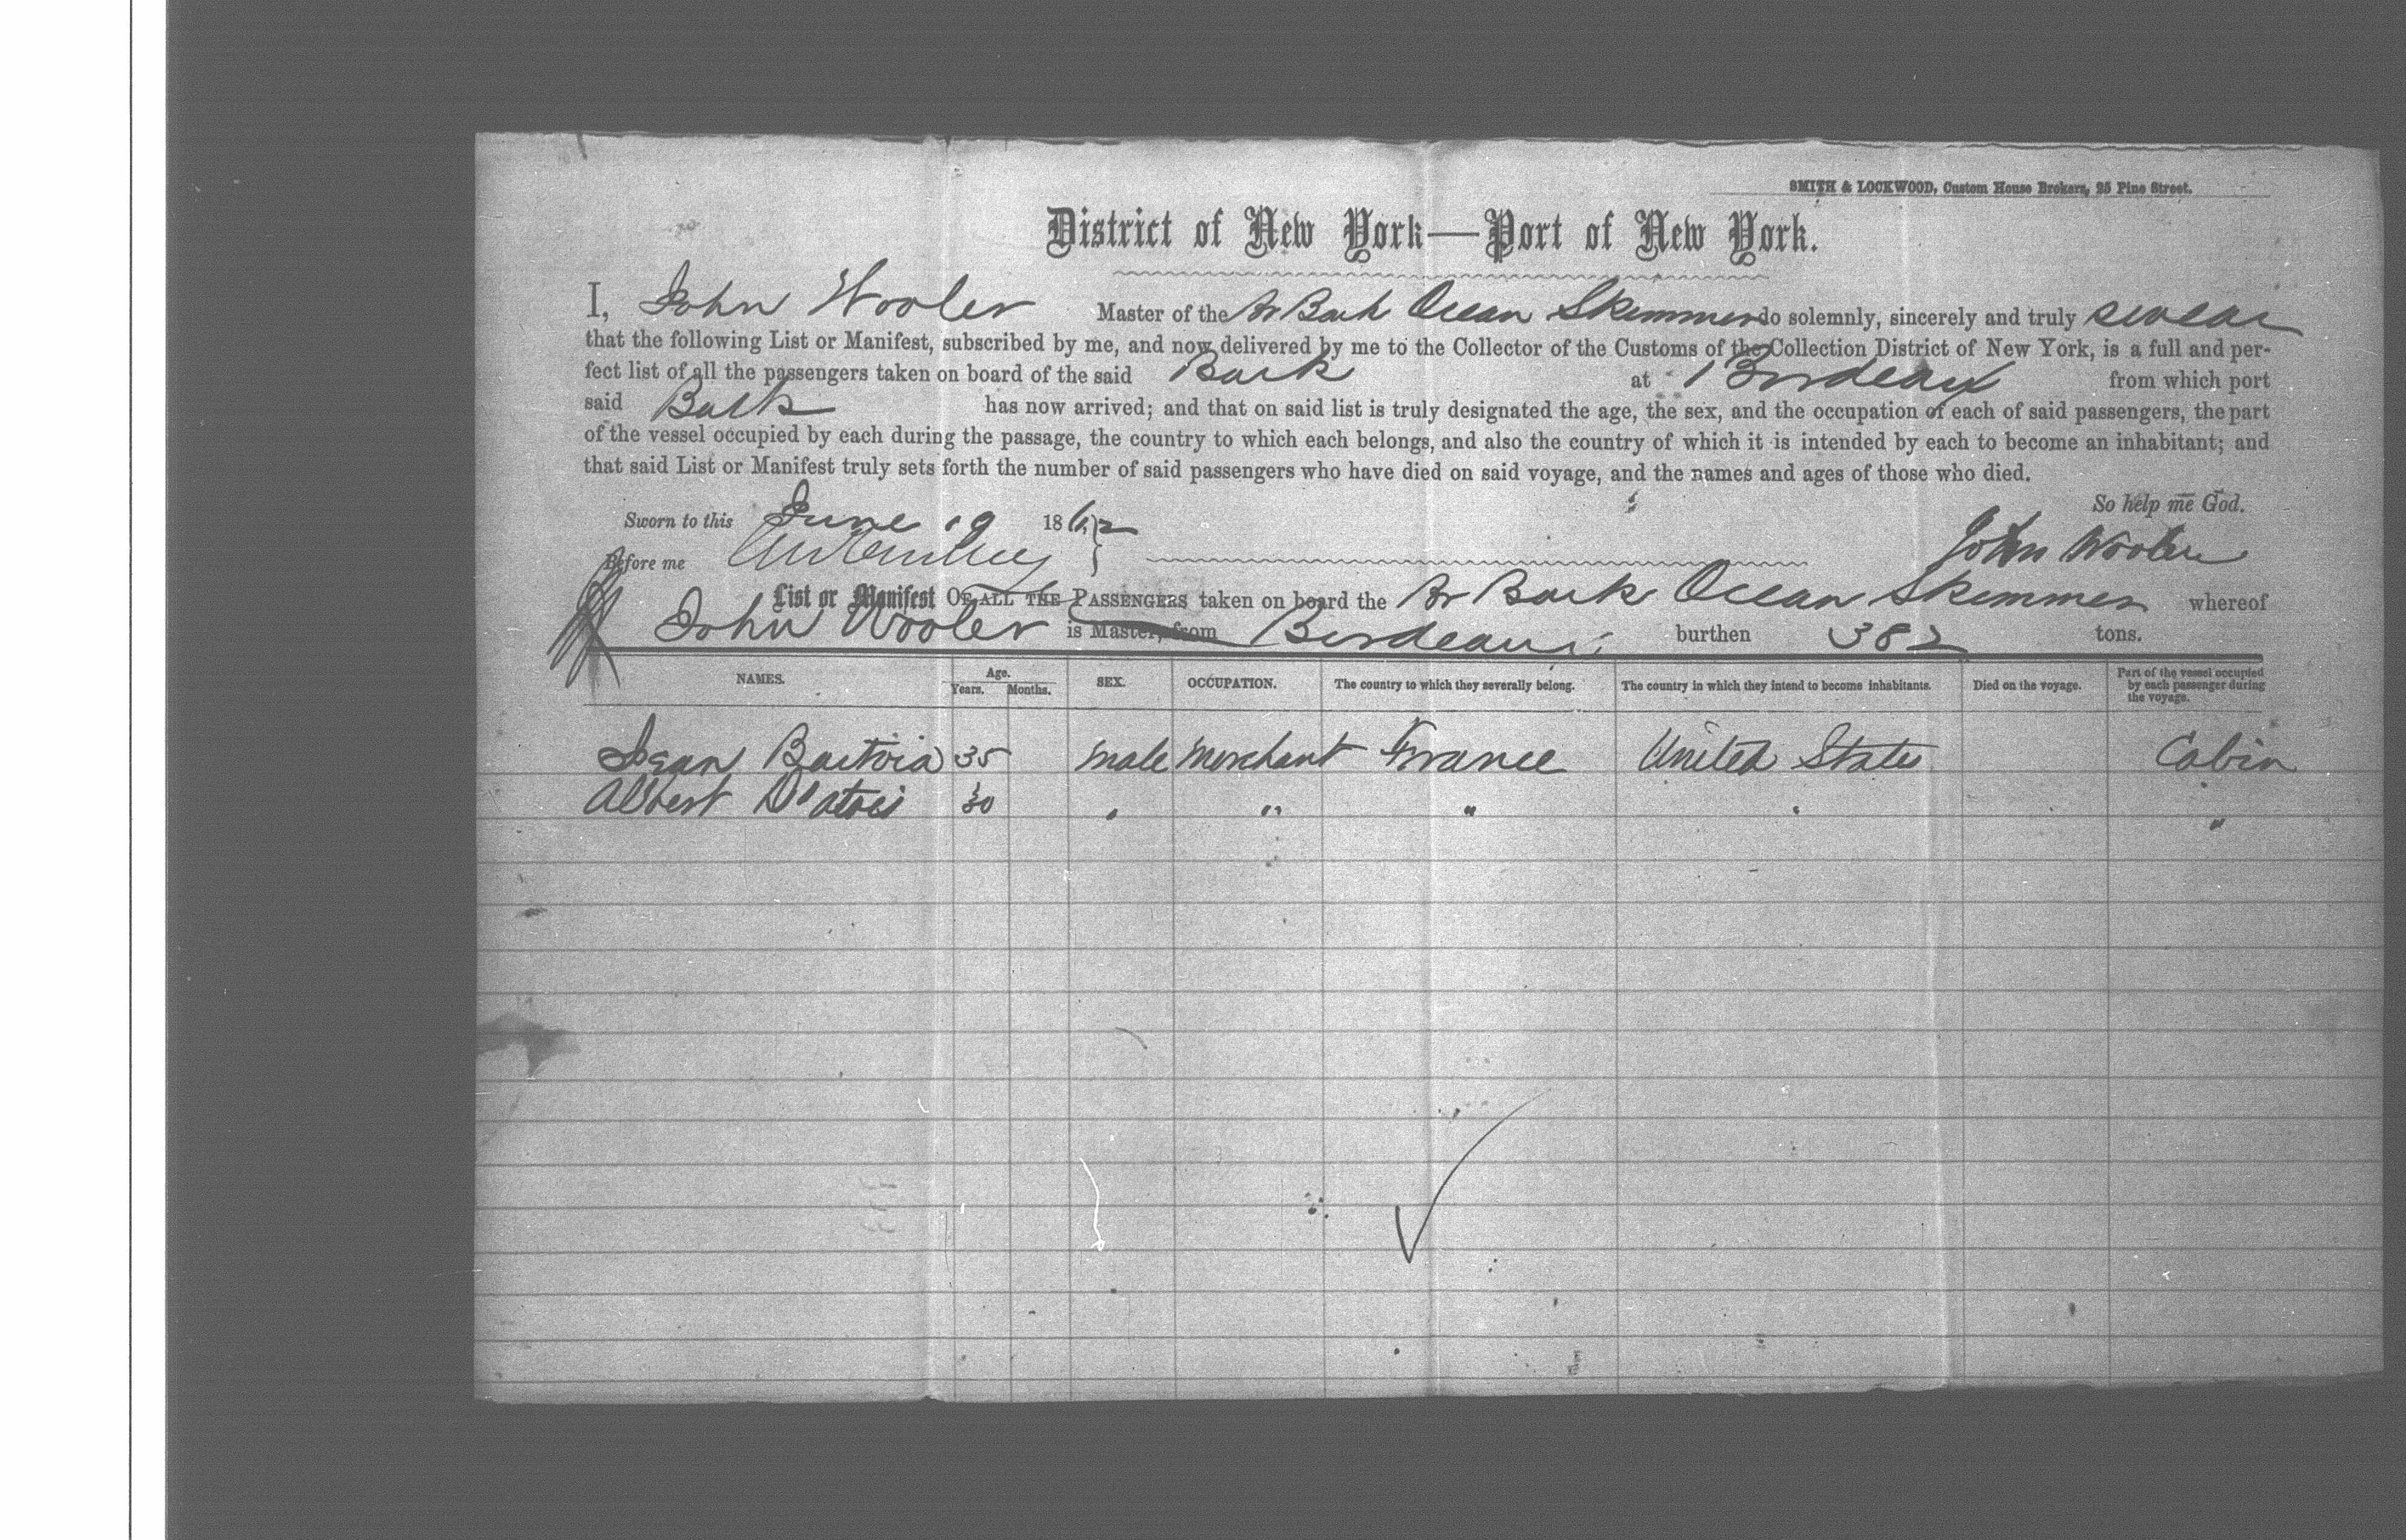 SMITH & LOCKWOOD, Custom House Brokers, 25 Pine Street.
District of New York—Port of New York.
I, John Wooler Master of the Br Bark Ocean Skimmer do solemnly, sincerely and truly swear
that the following List or Manifest, subscribed by me, and now delivered by me to the Collector of the Customs of the Collection District of New York, is a full and per-
fect list of all the passengers taken on board of the said Bark at Bordeaux from which port
said Bark has now arrived; and that on said list is truly designated the age, the sex, and the occupation of each of said passengers, the part
of the vessel occupied by each during the passage, the country to which each belongs, and also the country of which it is intended by each to become an inhabitant; and
that said List or Manifest truly sets forth the number of said passengers who have died on said voyage, and the names and ages of those who died.
So help me God.
Sworn to this June 19 1862
Before me John Wooler
List or Manifest OF ALL THE PASSENGERS taken on board the Br Bark Ocean Skimmer whereof
John Wooler is Master, from Bordeaux burthen 382 tons.
NAMES. Age. Years. Months. SEX. OCCUPATION. The country to which they severally belong. The country in which they intend to become inhabitants. Died on the voyage. Part of the vessel occupied by each passenger during the voyage.
Jean 35 Male Merchant France United States Cabin
Albert 30 " " " " "